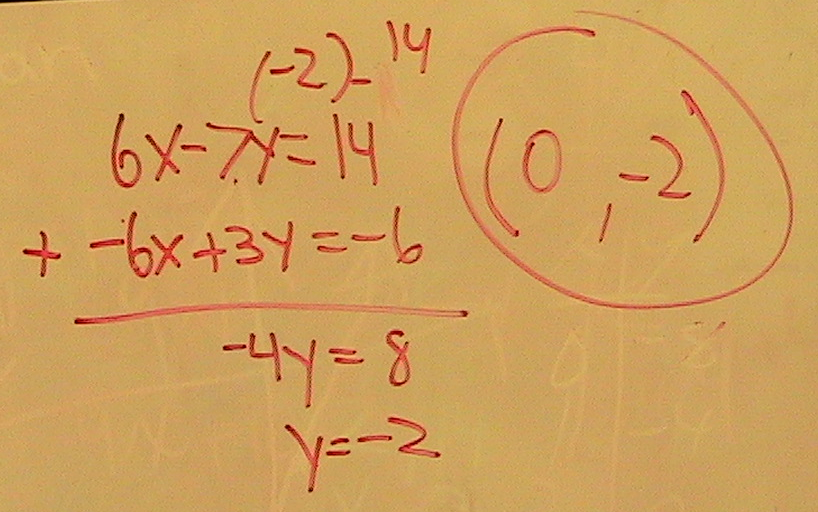 (-2) - 14
6x - 7y = 14
+ -6x + 3y = -6
-4y = 8
y = -2
(0, -2)